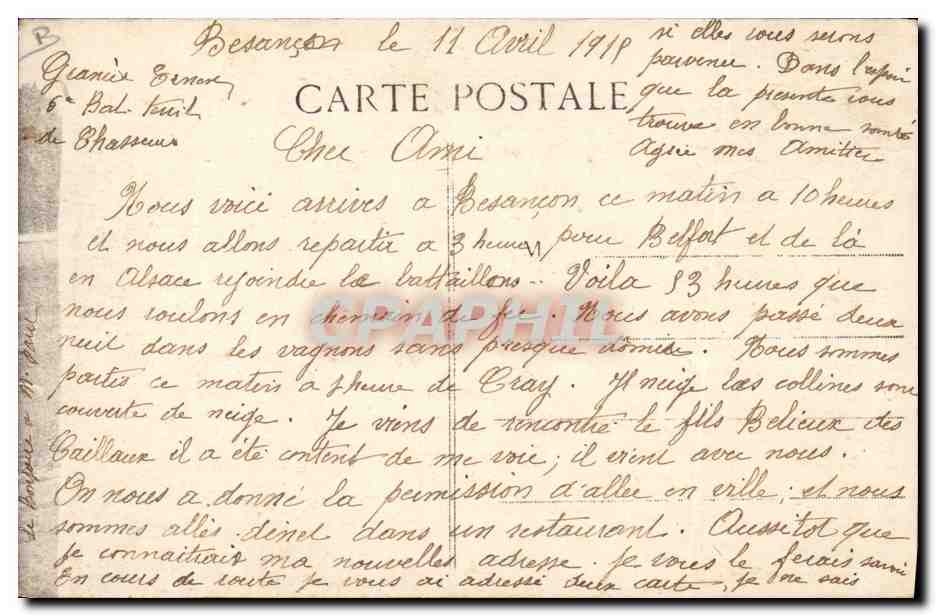 B
Besançon le 11 Avril 1915
6e Bat.
de Chasseurs
CARTE POSTALE
Cher Ami
Nous voici arrives a Besançon ce matin a 10 heures
et nous allons repartir a 3 heures pour Belfort et de là
en Alsace rejoindre le battaillons. Voila 53 heures que
nous roulons en chemin de fer. Nous avons passé deux
nuit dans les vagnons sans presque domir. Nous sommes
partis ce matin a heure de Gray. Il neige las collines sont
couverte de neige. Je viens de rencontré le fils Belieux des
Caillaux il a été content de me voir; il vient avec nous.
On nous a donné la permission d'aller en ville; et nous
sommes allès diner dans un restaurant. Aussitot que
je connaitrais ma nouvelles adresse je vous le ferais savoir
En cours de route je vous ai adressé deux carte, je ne sais
si elles vous serons
parvenue. Dans l'espoir
que la presente vous
trouve en bonne santé
Agrée mes Amitiés
CPAPHIL